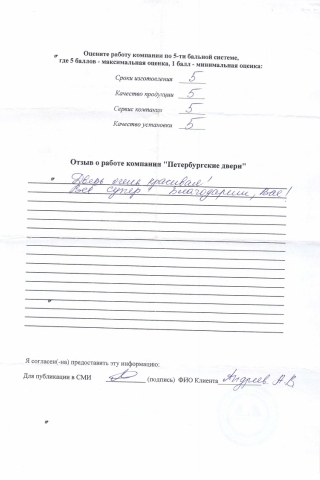 Оцените работу компании по 5-ти бальной системе,
где 5 баллов - максимальная оценка, 1 балл - минимальная оценка:
Сроки изготовления 5
Качество продукции 5
Сервис компании 5
Качество установки 5
Отзыв о работе компании "Петербургские двери"
Дверь очень красивая!
Все супер Благодарим, Вас!
Я согласен(-на) предоставить эту информацию:
Для публикации в СМИ (подпись) ФИО Клиента Андреев А В